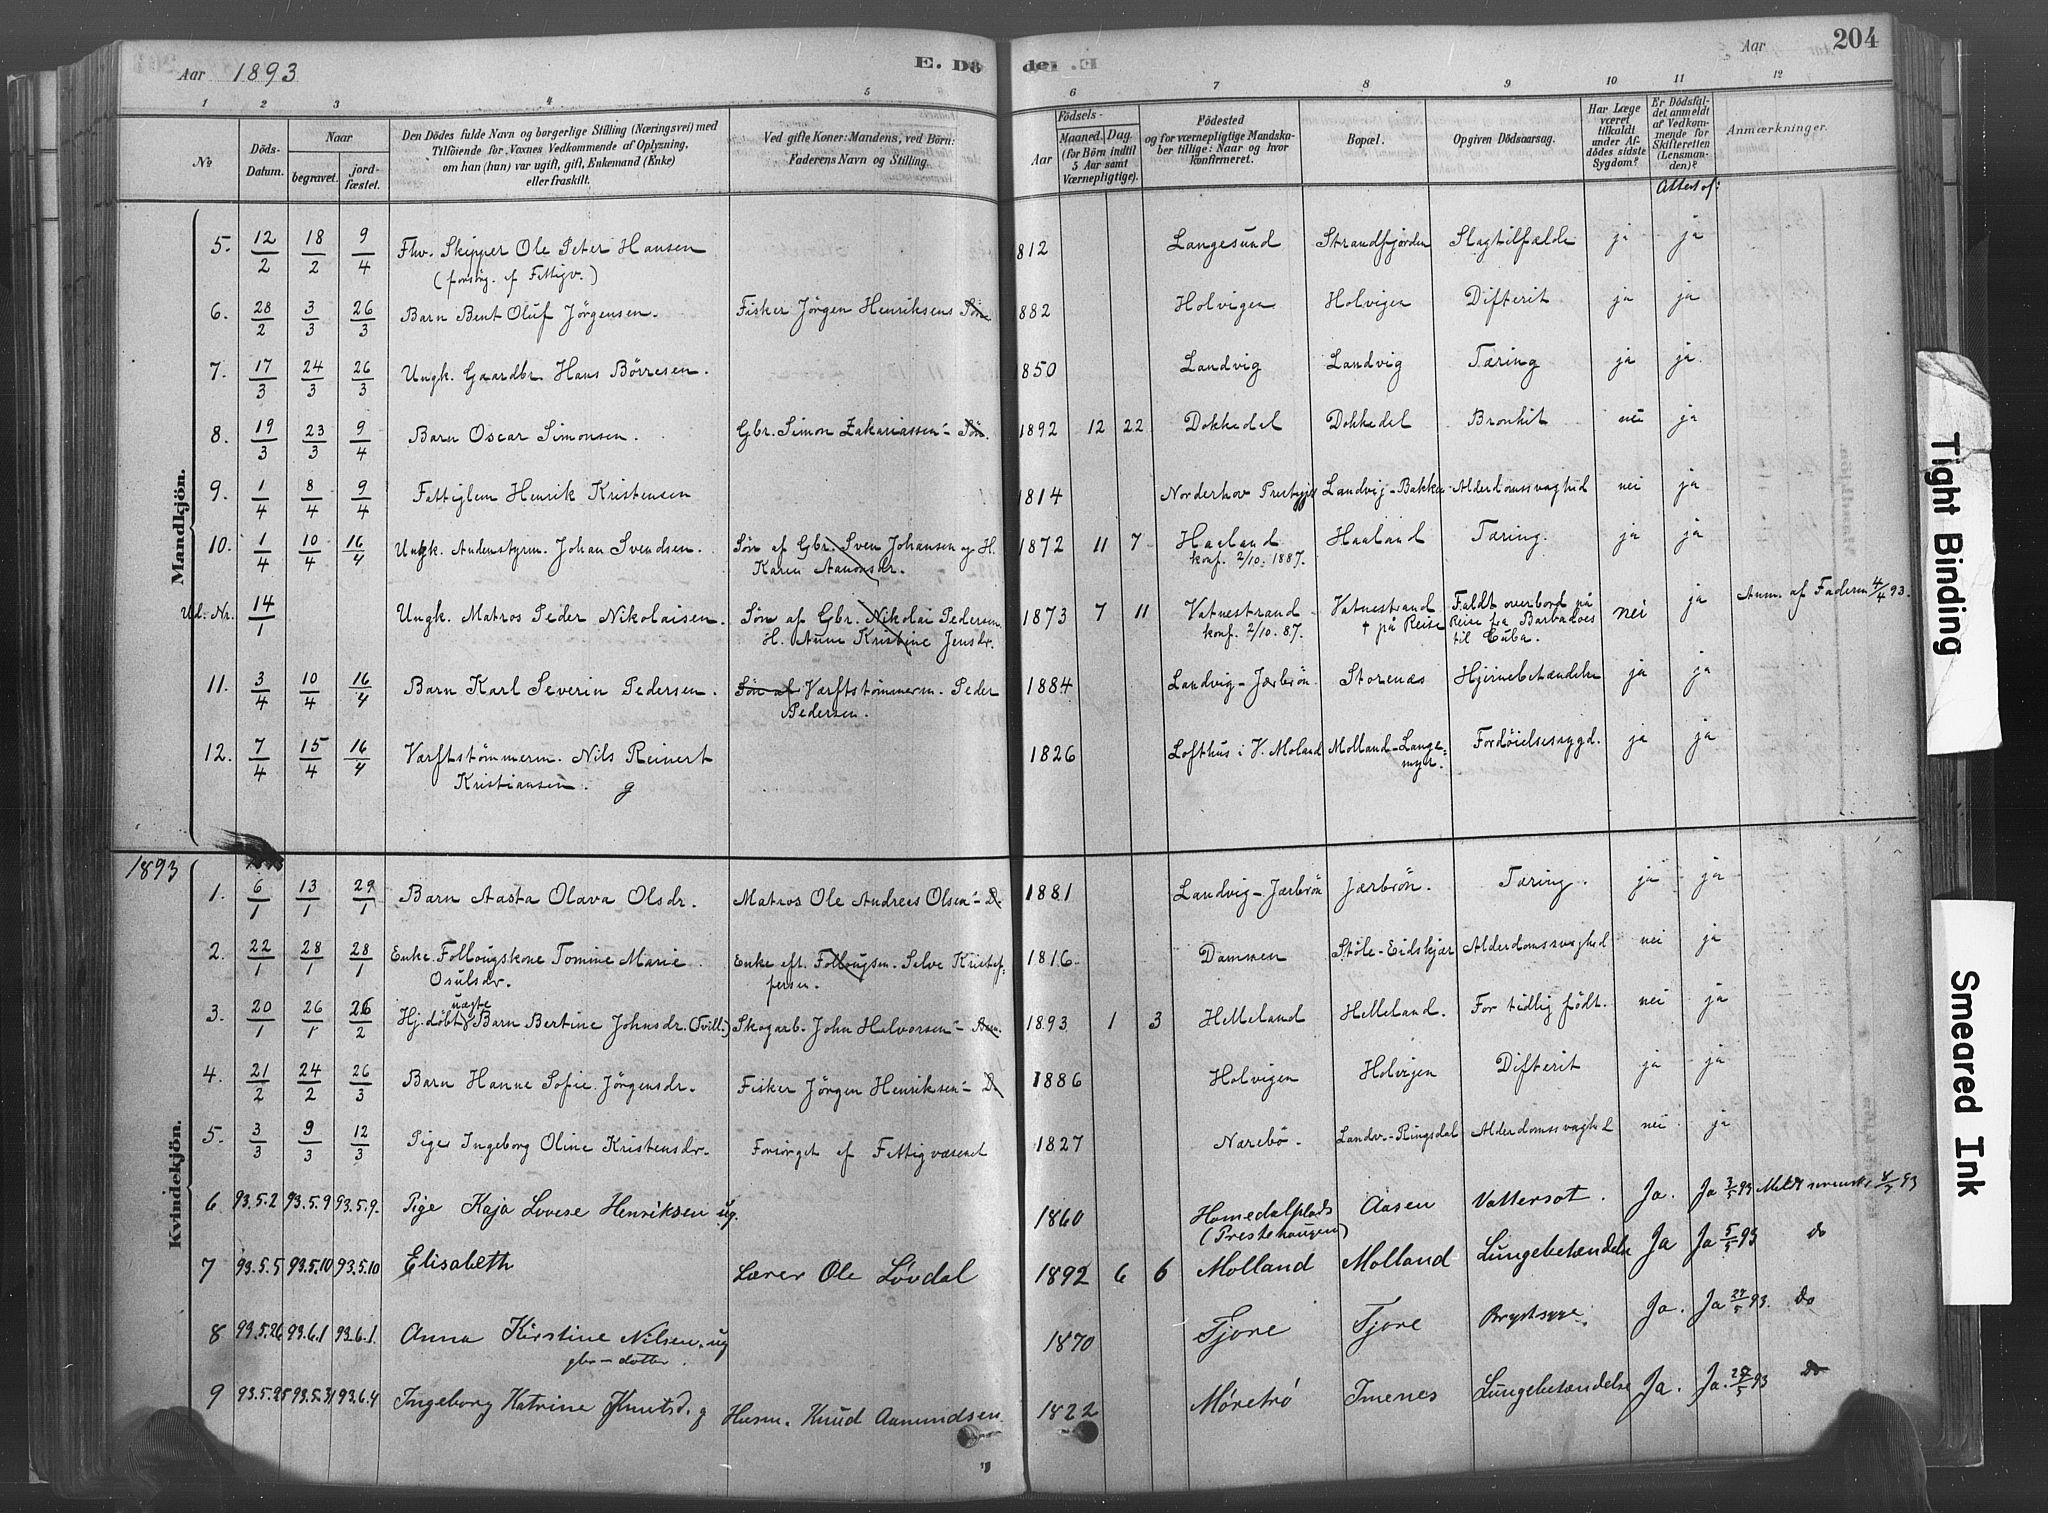 Aar 1893 E. Dö de. Aar 204
1 2 3 4 5 6 7 8 9 10 11 12
No Döds-Datum. Naar begravet. jord-fæstet. Den Dödes fulde Navn og borgerlige Stilling (Næringsvei) med Tilföiende for Voxnes Vedkommende af Oplysning, om han (hun) var ugift, gift, Enkemand (Enke) eller fraskilt. Ved gifte Koner: Mandens, ved Börn: Faderens Navn og Stilling. Födsels- Aar Maaned. Dag. (for Börn indtil 5 Aar samt Værnepligtige). Födested og for værnepligtige Mandskaber tillige: Naar og hvor konfirmeret. Bopæl. Opgiven Dödsaarsag. Har Læge været tilkaldt under Afdödes sidste Sygdom? Er Dödsfaldet anmeldt af Vedkommende for Skifteretten (Lensmanden)? Anmærkninger.
Attest af:
Mandkjön.
5. 12/2 18/2 9/4 Fhv. Skipper Ole Peter Hansen 1812 Langesund Strandfjorden Slagtilfælde ja ja
(forsörg. af Fattigv.)
6. 28/2 3/3 26/3 Barn Bent Oluf Jörgensen. Fisker Jörgen Henriksens Sön 1882 Holvigen Holvigen Difterit ja ja
7. 17/3 24/3 26/3 Ungk. Gaardbr. Hans Börresen. 1850 Landvig Landvig Tæring ja ja.
8. 19/3 23/3 9/4 Barn Oscar Simonsen. Gbr. Simon Zakariassen - Sön. 1892 12 22 Dokkedel Dokkedel Bronkit nei ja
9. 1/4 8/4 9/4 Fattiglem Henrik Kristensen 1814 Norderhov Prestegj. Landvig-Bakken Alderdomssvaghed nei ja
10. 1/4 10/4 16/4 Ungk. Andenstyrm. Johan Svendsen. Sön af Gbr. Sven Johansen og H. 1872 11 7 Haaland Haaland Tæring. ja ja
Karen Aanonsdr. konf. 2/10. 1887.
Ud. Nr. 14/1 Ungk. Matros Peder Nikolaisen. Sön af Gbr. Nikolai Pedersen 1873 7 11 Vatnestrand Vatnestrand Faldt overbord på nei ja Anm. af Faderen 4/4 93.
H. Anne Kristine Jensdr. konf. 2/10. 87. † på Reise Reise fra Barbadoes til Cuba.
11. 3/4 10/4 16/4 Barn Karl Severin Pedersen. Sön af Værftstømmerm. Peder 1884 Landvig-Jærbrön. Storenæs Hjernebetændelse ja ja
Pedersen.
12. 7/4 15/4 16/4 Værftstømmerm. Nils Reinert 1826 Lofthus i V. Moland Molland-Lange- Fordöielsessygd. ja ja
Kristiansen. g myr.
1893
Kvindekjön.
1. 6/1 13/1 29/1 Barn Aasta Olava Olsdr. Matros Ole Andreas Olsen - D. 1881 Landvig-Jærbrön Jærbrön. Tæring. ja ja
2. 22/1 28/1 28/1 Enke Follougskone Tomine Marie Enke eft. Follougsm. Salve Kristof- 1816 Dammen Støle-Eidskjær Alderdomssvaghed nei ja
Osulsdr. fersen.
uægte
3. 20/1 26/1 26/2 Hj. döbt Barn Bertine Johnsdr. (Tvill.) Skogarb. John Halvorsen - 1893 1 3 Helleland Helleland. For tidlig födt. nei ja
4. 21/2 24/2 26/3 Barn Hanne Sofie Jörgensdr. Fisker Jörgen Henriksen - D. 1886 Holvigen Holvigen Difterit ja ja
5. 3/3 9/3 12/3 Pige Ingeborg Oline Kristensdr. Forsörget af Fattigvæsenet 1827 Narebö. Landv.-Ringsdal Alderdomssvaghed nei ja
6 93.5.2 93.5.9 93.5.9. Pige Kaja Lovise Henriksen ug. 1860 Homedalplads Aasen Vattersot. Ja. Ja 3/5 93
(Prestehaugen)
7 93.5.5 93.5.10 93.5.10 Elisabeth Lærer Ole Lövdal 1892 6 6 Molland Molland Lungebetændelse Ja Ja 5/5 93 do
8 93.5.26 93.6.1 93.6.1. Anna Kirstine Nilsen. ug 1870 Fjore Fjore Brystsyge. Ja. Ja 27/5 93. Do
gbr-datter.
9 93.5.25 93.5.31 93.6.4 Ingeborg Katrine Knutsd. g Husm. Knud Aamundsen 1822 Møretrö Imenes Lungebetændelse Ja. Ja. 27/5 93 Do
Tight Binding
Smeared Ink